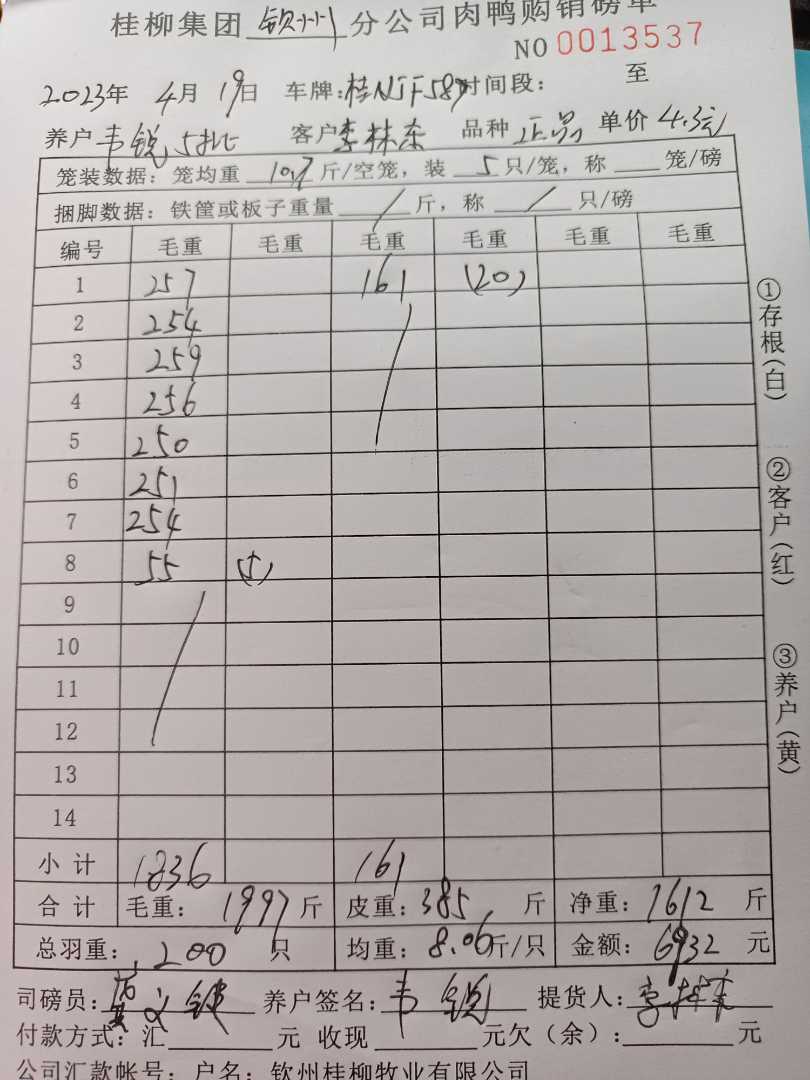 桂柳集团 钦州 分公司肉鸭购销磅单
NO 0013537
2023年 4月 19日 车牌:桂NJF587 时间段: 至
养户 韦锐5批 客户 李林东 品种 正品 单价 4.3元
笼装数据:笼均重 10.7 斤/空笼,装 5 只/笼,称 笼/磅
捆脚数据:铁筐或板子重量 / 斤,称 / 只/磅
编号 毛重 毛重 毛重 毛重 毛重 毛重
1 257 161 (20)
2 254
3 259
4 256
5 250
6 251
7 254
8 55 (5)
9
10
11
12
13
14
小计 1836 161
合计 毛重: 1997 斤 皮重: 385 斤 净重: 1612 斤
总羽重: 200 只 均重: 8.06 斤/只 金额: 6932 元
司磅员: 养户签名: 韦锐 提货人: 李林东
付款方式:汇 元 收现 元欠(余): 元
公司汇款帐号:户名:钦州桂柳牧业有限公司
①存根(白)
②客户(红)
③养户(黄)